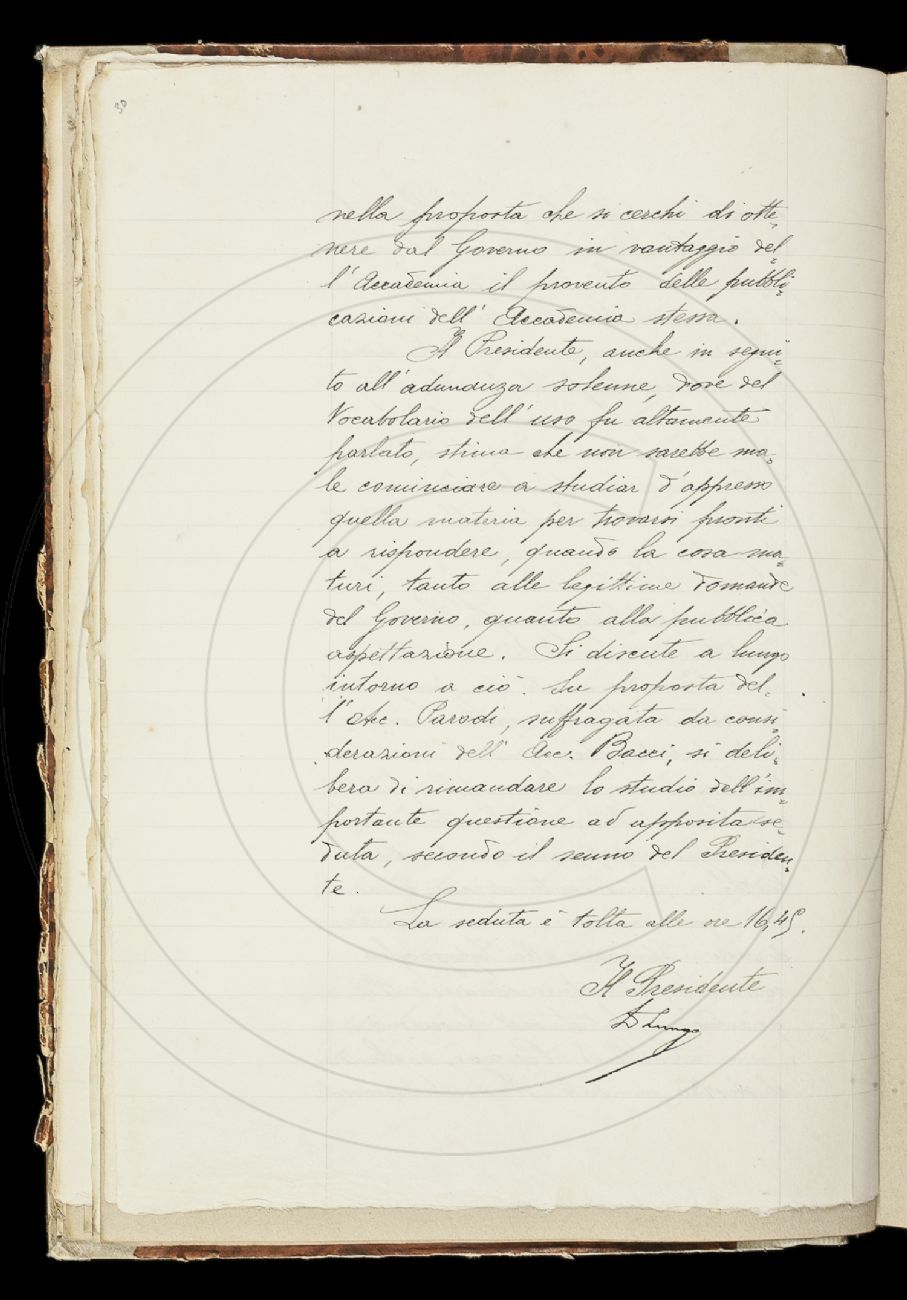 30
nella proposta che si cerchi di otte¸
nere dal Governo in vantaggio del=
l'Accademia il provento delle pubbli=
cazioni dell'Accademia stessa.
Il Presidente, anche in segui=
to all'adunanza solenne, dove del
Vocabolario dell'uso fu altamente
parlato, stima che non sarebbe ma=
le cominciare a studiar d'appresso
quella materia per trovarsi pronti
a rispondere, quando la cosa ma=
turi, tanto alle legittime domande
del Governo, quanto alla pubblica
aspettazione. Si discute a lungo
intorno a ciò. Su proposta del=
l'Acc. Parodi, suffragata da consi=
derazioni dell'Acc. Bacci, si deli=
bera di rimandare lo studio dell'im=
portante questione ad apposita se=
duta, secondo il senno del Presiden=
te.
La seduta è tolta alle ore 16,45.
Il Presidente
D Lungo